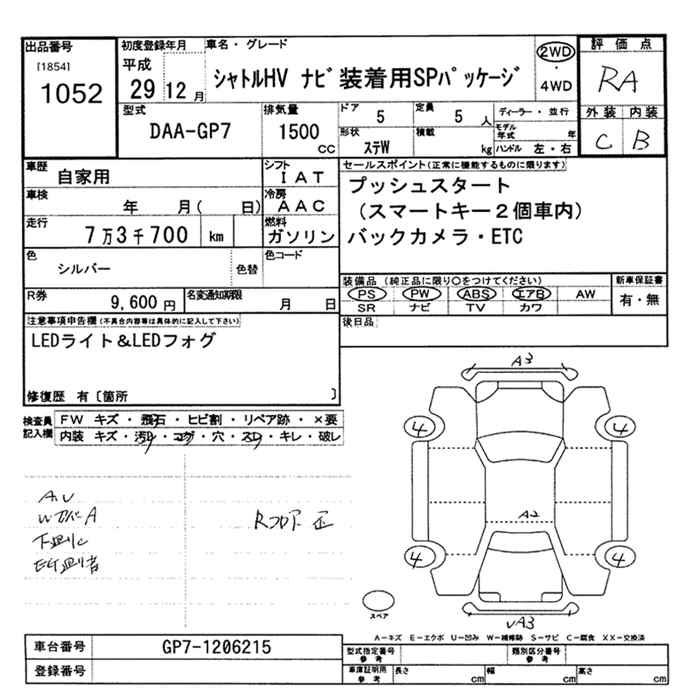 出品番号
[1854]
1052
初度登録年月
平成
29 12 月
車名・グレード
シャトルHV ナビ装着用SPパッケージ
2WD
・
4WD
評価点
RA
外装 内装
C B
型式
DAA-GP7
排気量
1500
cc
ドア 5
定員 5 人
ディーラー・並行
形状 ステW
積載 kg
モデル年式 年
ハンドル 左・右
車歴
自家用
シフト
IAT
車検
年 月( 日)
冷房
AAC
走行
7万3千700 km
燃料
ガソリン
セールスポイント(正常に機能するものに限ります)
プッシュスタート
(スマートキー2個車内)
バックカメラ・ETC
色
シルバー
色替
色コード
R券
9,600 円
名変通知期限
月 日
装備品 (純正品に限り○をつけてください)
PS PW ABS エアB AW
SR ナビ TV カワ
新車保証書
有・無
後日品
注意事項申告欄(不具合内容等は具体的に記入して下さい)
LEDライト&LEDフォグ
修復歴 有〔箇所 〕
検査員記入欄
FW キズ・飛石・ヒビ割・リペア跡・×要
内装 キズ・汚れ・コゲ・穴・スレ・キレ・破レ
A.V
WTバーA
下廻りC
R フロア 歪
A3
4 4
A2
4 4
A3
スペア
A-キズ E-エクボ U-凹み W-補修跡 S-サビ C-腐食 XX-交換済
車台番号
GP7-1206215
登録番号
型式指定番号
参考
類別区分番号
参考
車庫証明用
参考
長さ cm
幅 cm
高さ cm